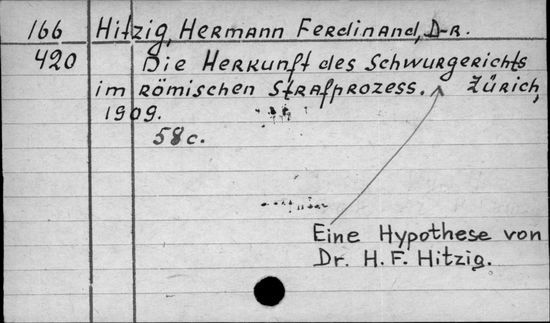 166 Hitzig, Hermann Ferdinand, D-r.
420 Die Herkunft des Schwurgerichts
im römischen Strafprozess. Zürich,
1909.
58 c.
Eine Hypothese von
Dr. H. F. Hitzig.